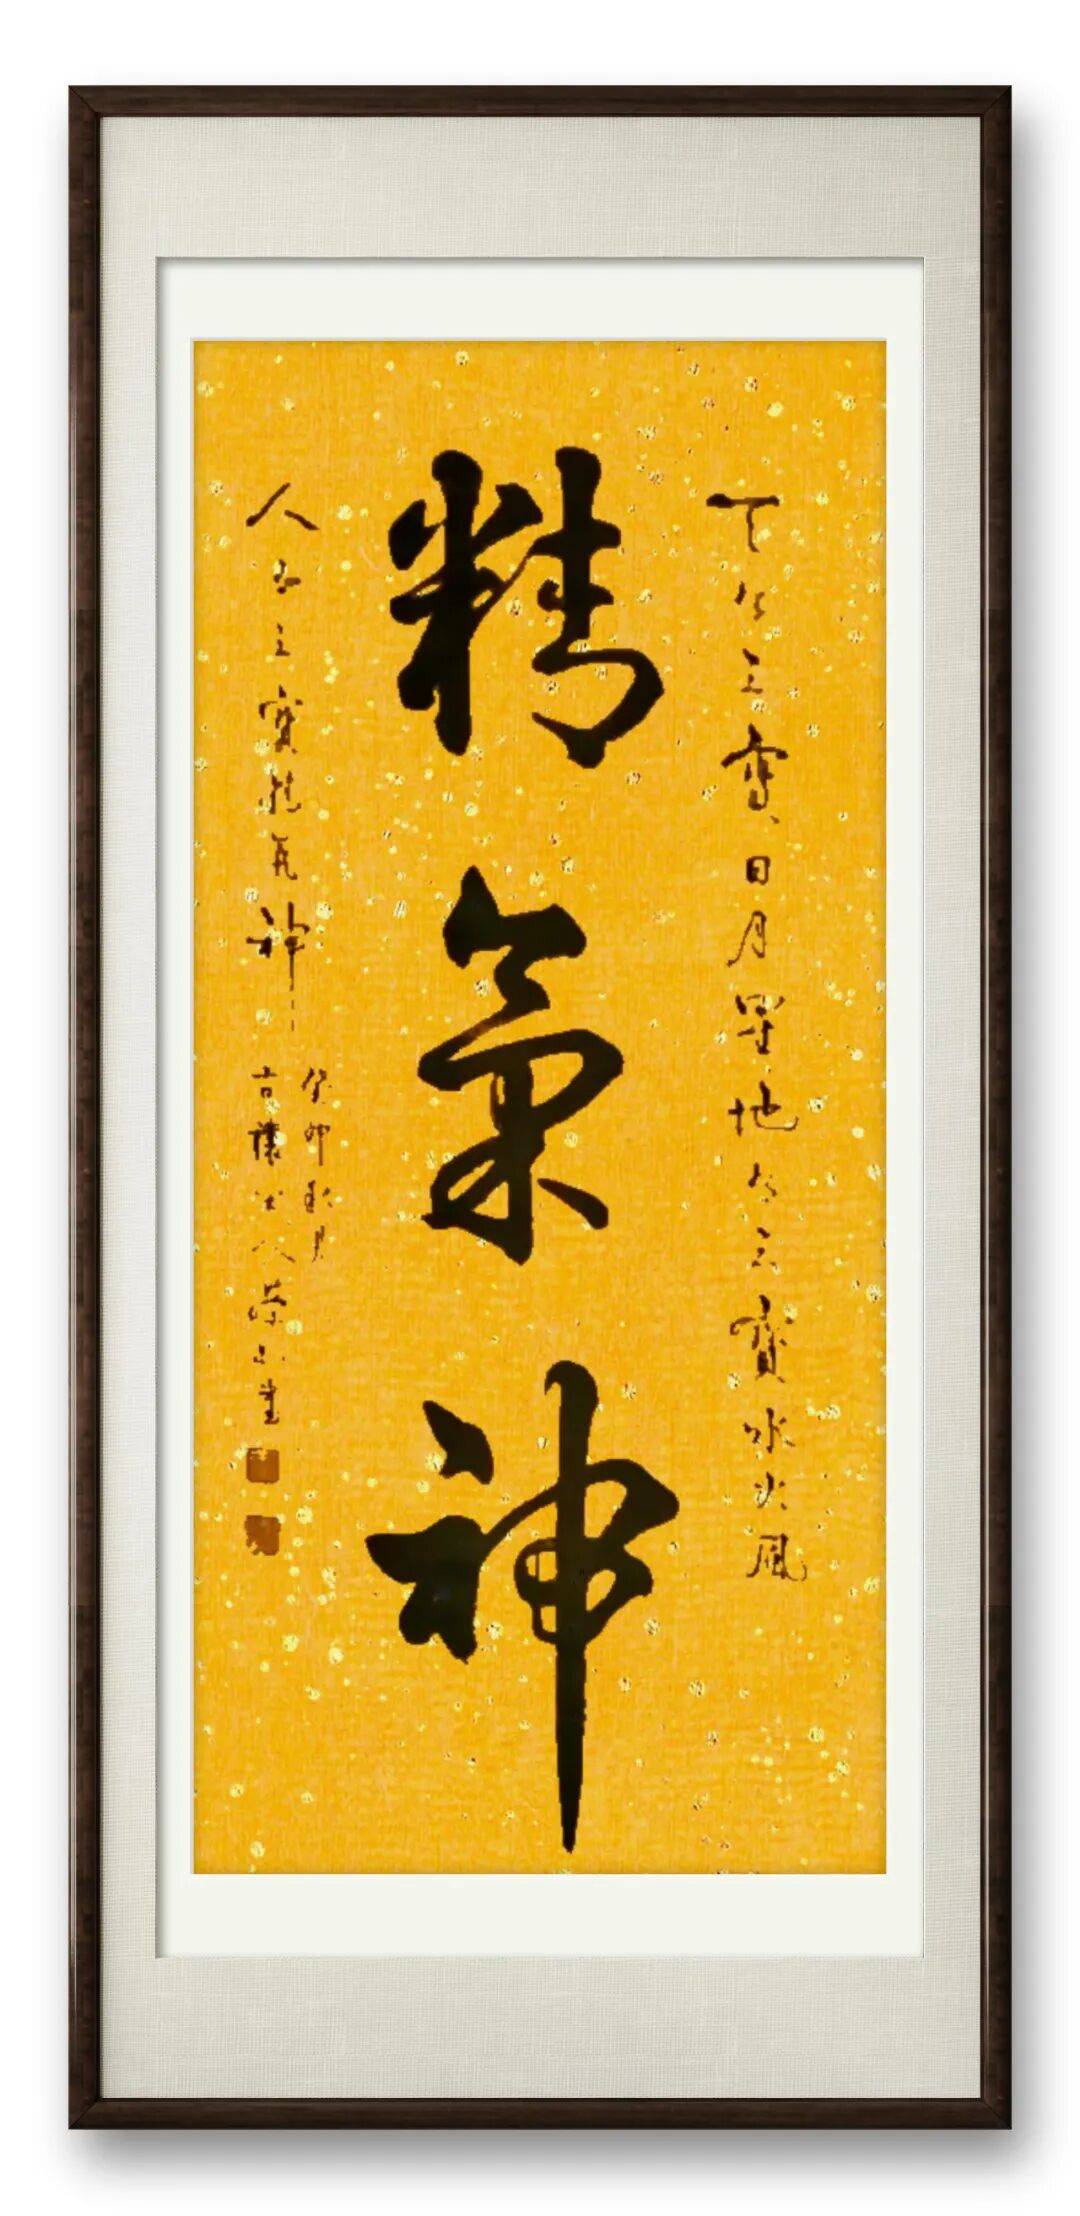 天有三寶日月星地有三寶水火風
精氣神
人有三寶精氣神
癸卯秋月
古穰
書